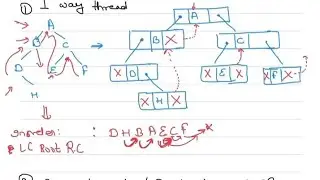 1) I way thread
A
B C
D E F
H
A
B X C
X D X E X F X
X H X
Inorder : D H B A E C F X
LC Root RC